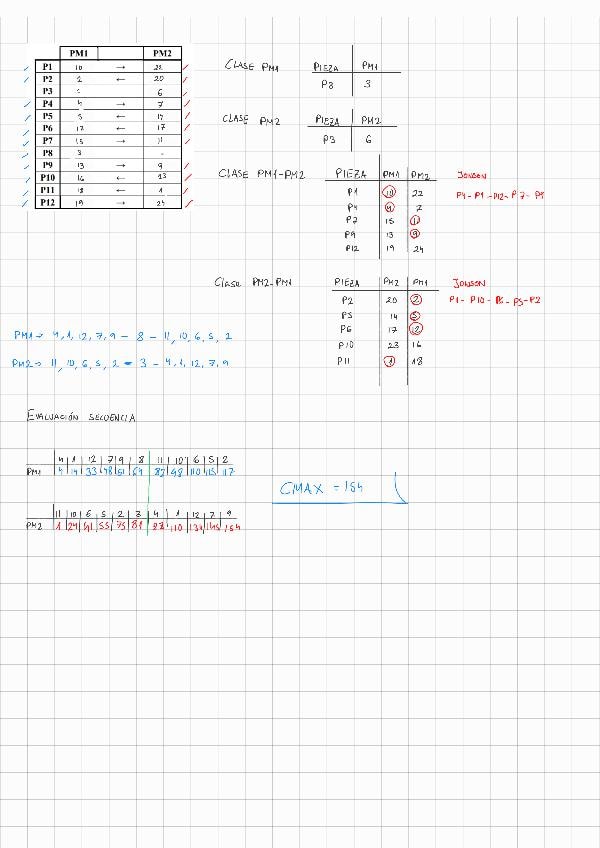 PM1 PM2
P1 10 → 22
P2 2 ← 20
P3 - 6
P4 4 → 7
P5 5 ← 14
P6 12 ← 17
P7 15 → 11
P8 3 -
P9 13 → 9
P10 16 ← 23
P11 18 ← 1
P12 19 → 24
CLASE PM1
PIEZA PM1
P8 3
CLASE PM2
PIEZA PM2
P3 6
CLASE PM1-PM2
PIEZA PM1 PM2
P1 10 22
P4 4 7
P7 15 11
P9 13 9
P12 19 24
JONSON
P4 - P1 - P12 - P7 - P9
Clase PM2-PM1
PIEZA PM2 PM1
P2 20 2
P5 14 5
P6 17 12
P10 23 16
P11 1 18
JONSON
P10 - P5 - P2
PM1 → 4, 1, 12, 7, 9 - 8 - 11, 10, 6, 5, 2
PM2 → 11, 10, 6, 5, 2 - 3 - 4, 1, 12, 7, 9
EVALUACIÓN SECUENCIA
4 1 12 7 9 8 11 10 6 5 2
PM1 4 14 33 48 61 64 82 98 110 115 117
11 10 6 5 2 3 4 1 12 7 9
PM2 1 24 41 55 75 81 88 110 134 145 154
CMAX = 154